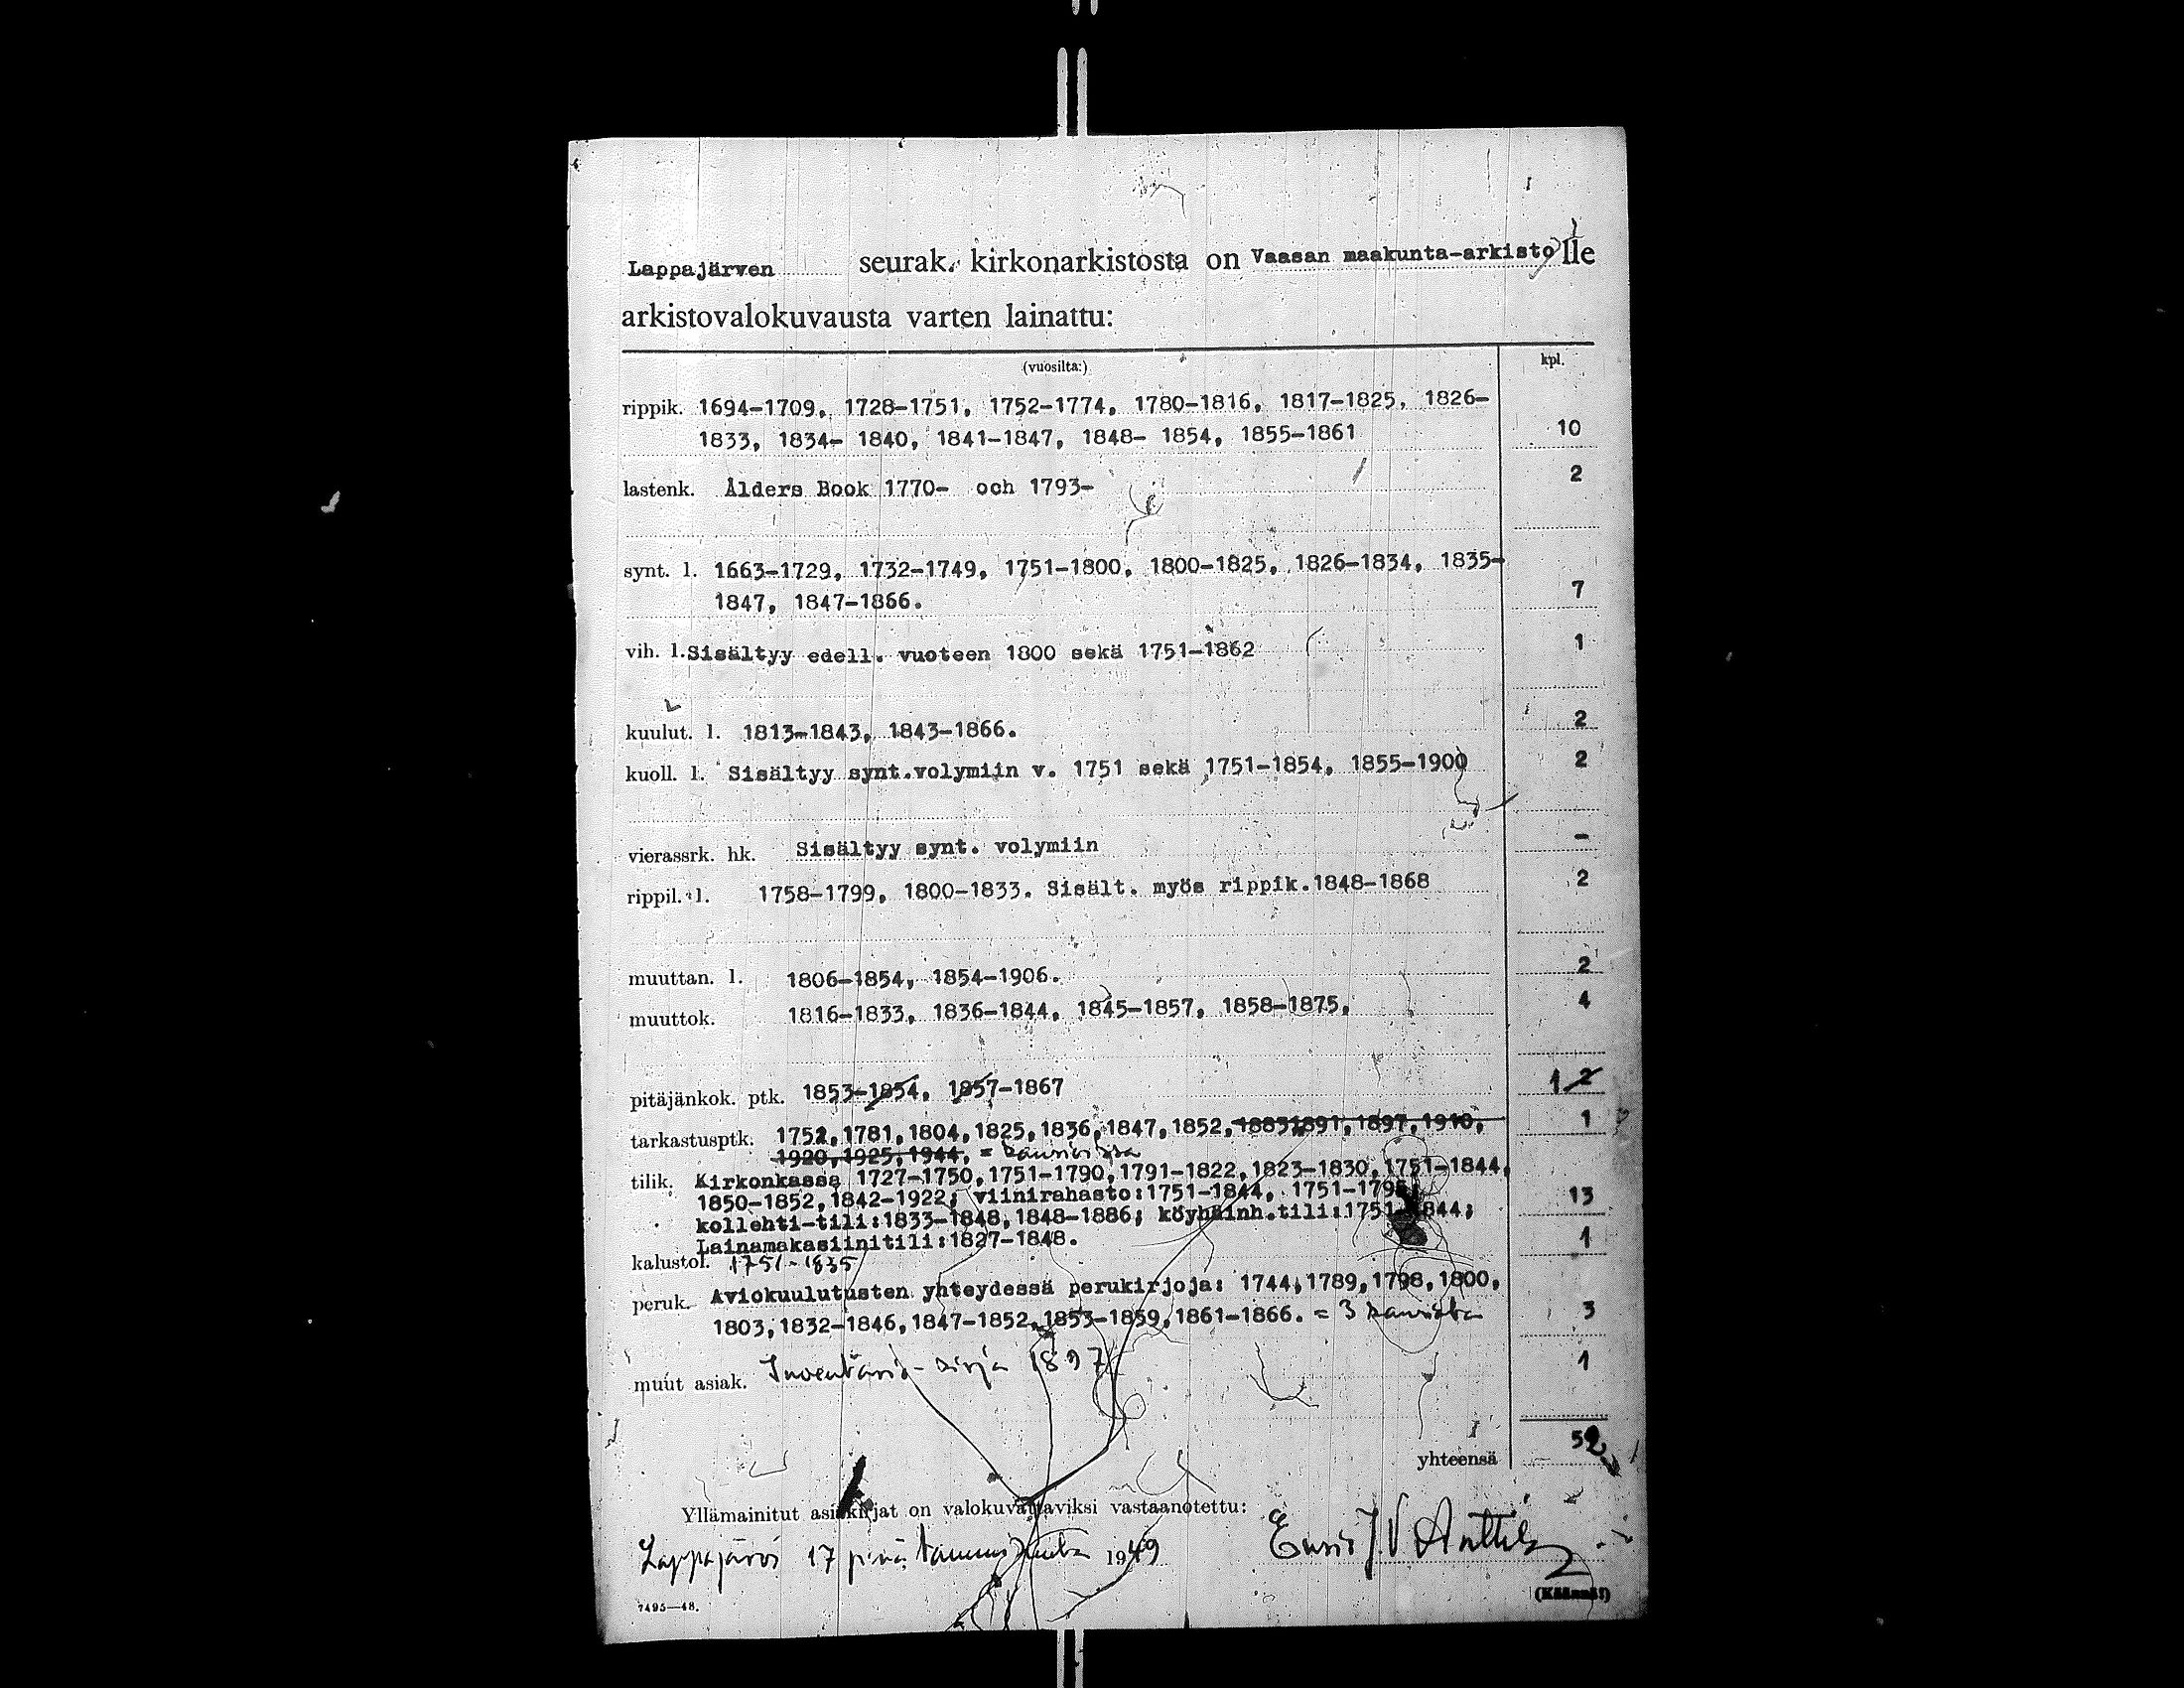 Lappajärven seurak. kirkonarkistosta on Vaasan maakunta-arkistolle
arkistovalokuvausta varten lainattu:
(vuosilta:) kpl.
rippik. 1694-1709, 1728-1751, 1752-1774, 1780-1816, 1817-1825, 1826-
1833, 1834- 1840, 1841-1847, 1848- 1854, 1855-1861 10
lastenk. Ålders Book 1770- och 1793- 2
synt. l. 1663-1729, 1732-1749, 1751-1800, 1800-1825, 1826-1834, 1835-
1847, 1847-1866. 7
vih. l. Sisältyy edell. vuoteen 1800 sekä 1751-1862 1
kuulut. l. 1813-1843, 1843-1866. 2
kuoll. l. Sisältyy synt.volymiin v. 1751 sekä 1751-1854, 1855-1900 2
vierassrk. hk. Sisältyy synt. volymiin -
rippil. l. 1758-1799, 1800-1833. Sisält. myös rippik.1848-1868 2
muuttan. l. 1806-1854, 1854-1906. 2
muuttok. 1816-1833, 1836-1844, 1845-1857, 1858-1875, 4
pitäjänkok. ptk. 1853-1854, 1857-1867 1 2
tarkastusptk. 1752,1781,1804,1825,1836,1847,1852,18831891,1897,1910, 1
1920,1925,1944, =
tilik. Kirkonkassa 1727-1750,1751-1790,1791-1822,1823-1830,1751-1844,
1850-1852,1842-1922; viinirahasto:1751-1844, 1751-1795;
kollehti-tili:1833-1848,1848-1886; köyhäinh.tili:1751-1844; 13
Lainamakasiinitili:1827-1848.
kalustol. 1751-1835 1
peruk. Aviokuulutusten yhteydessä perukirjoja: 1744,1789,1798,1800,
1803,1832-1846,1847-1852,1853-1859,1861-1866. = 3 3
muut asiak. Inventario-kirja 1897 1
yhteensä 52
Yllämainitut asiakirjat on valokuvattaviksi vastaanotettu:
Lappajärvi 17 p:nä tammikuuta 1949 J.V Anttila
(Käännä!)
7495—48.